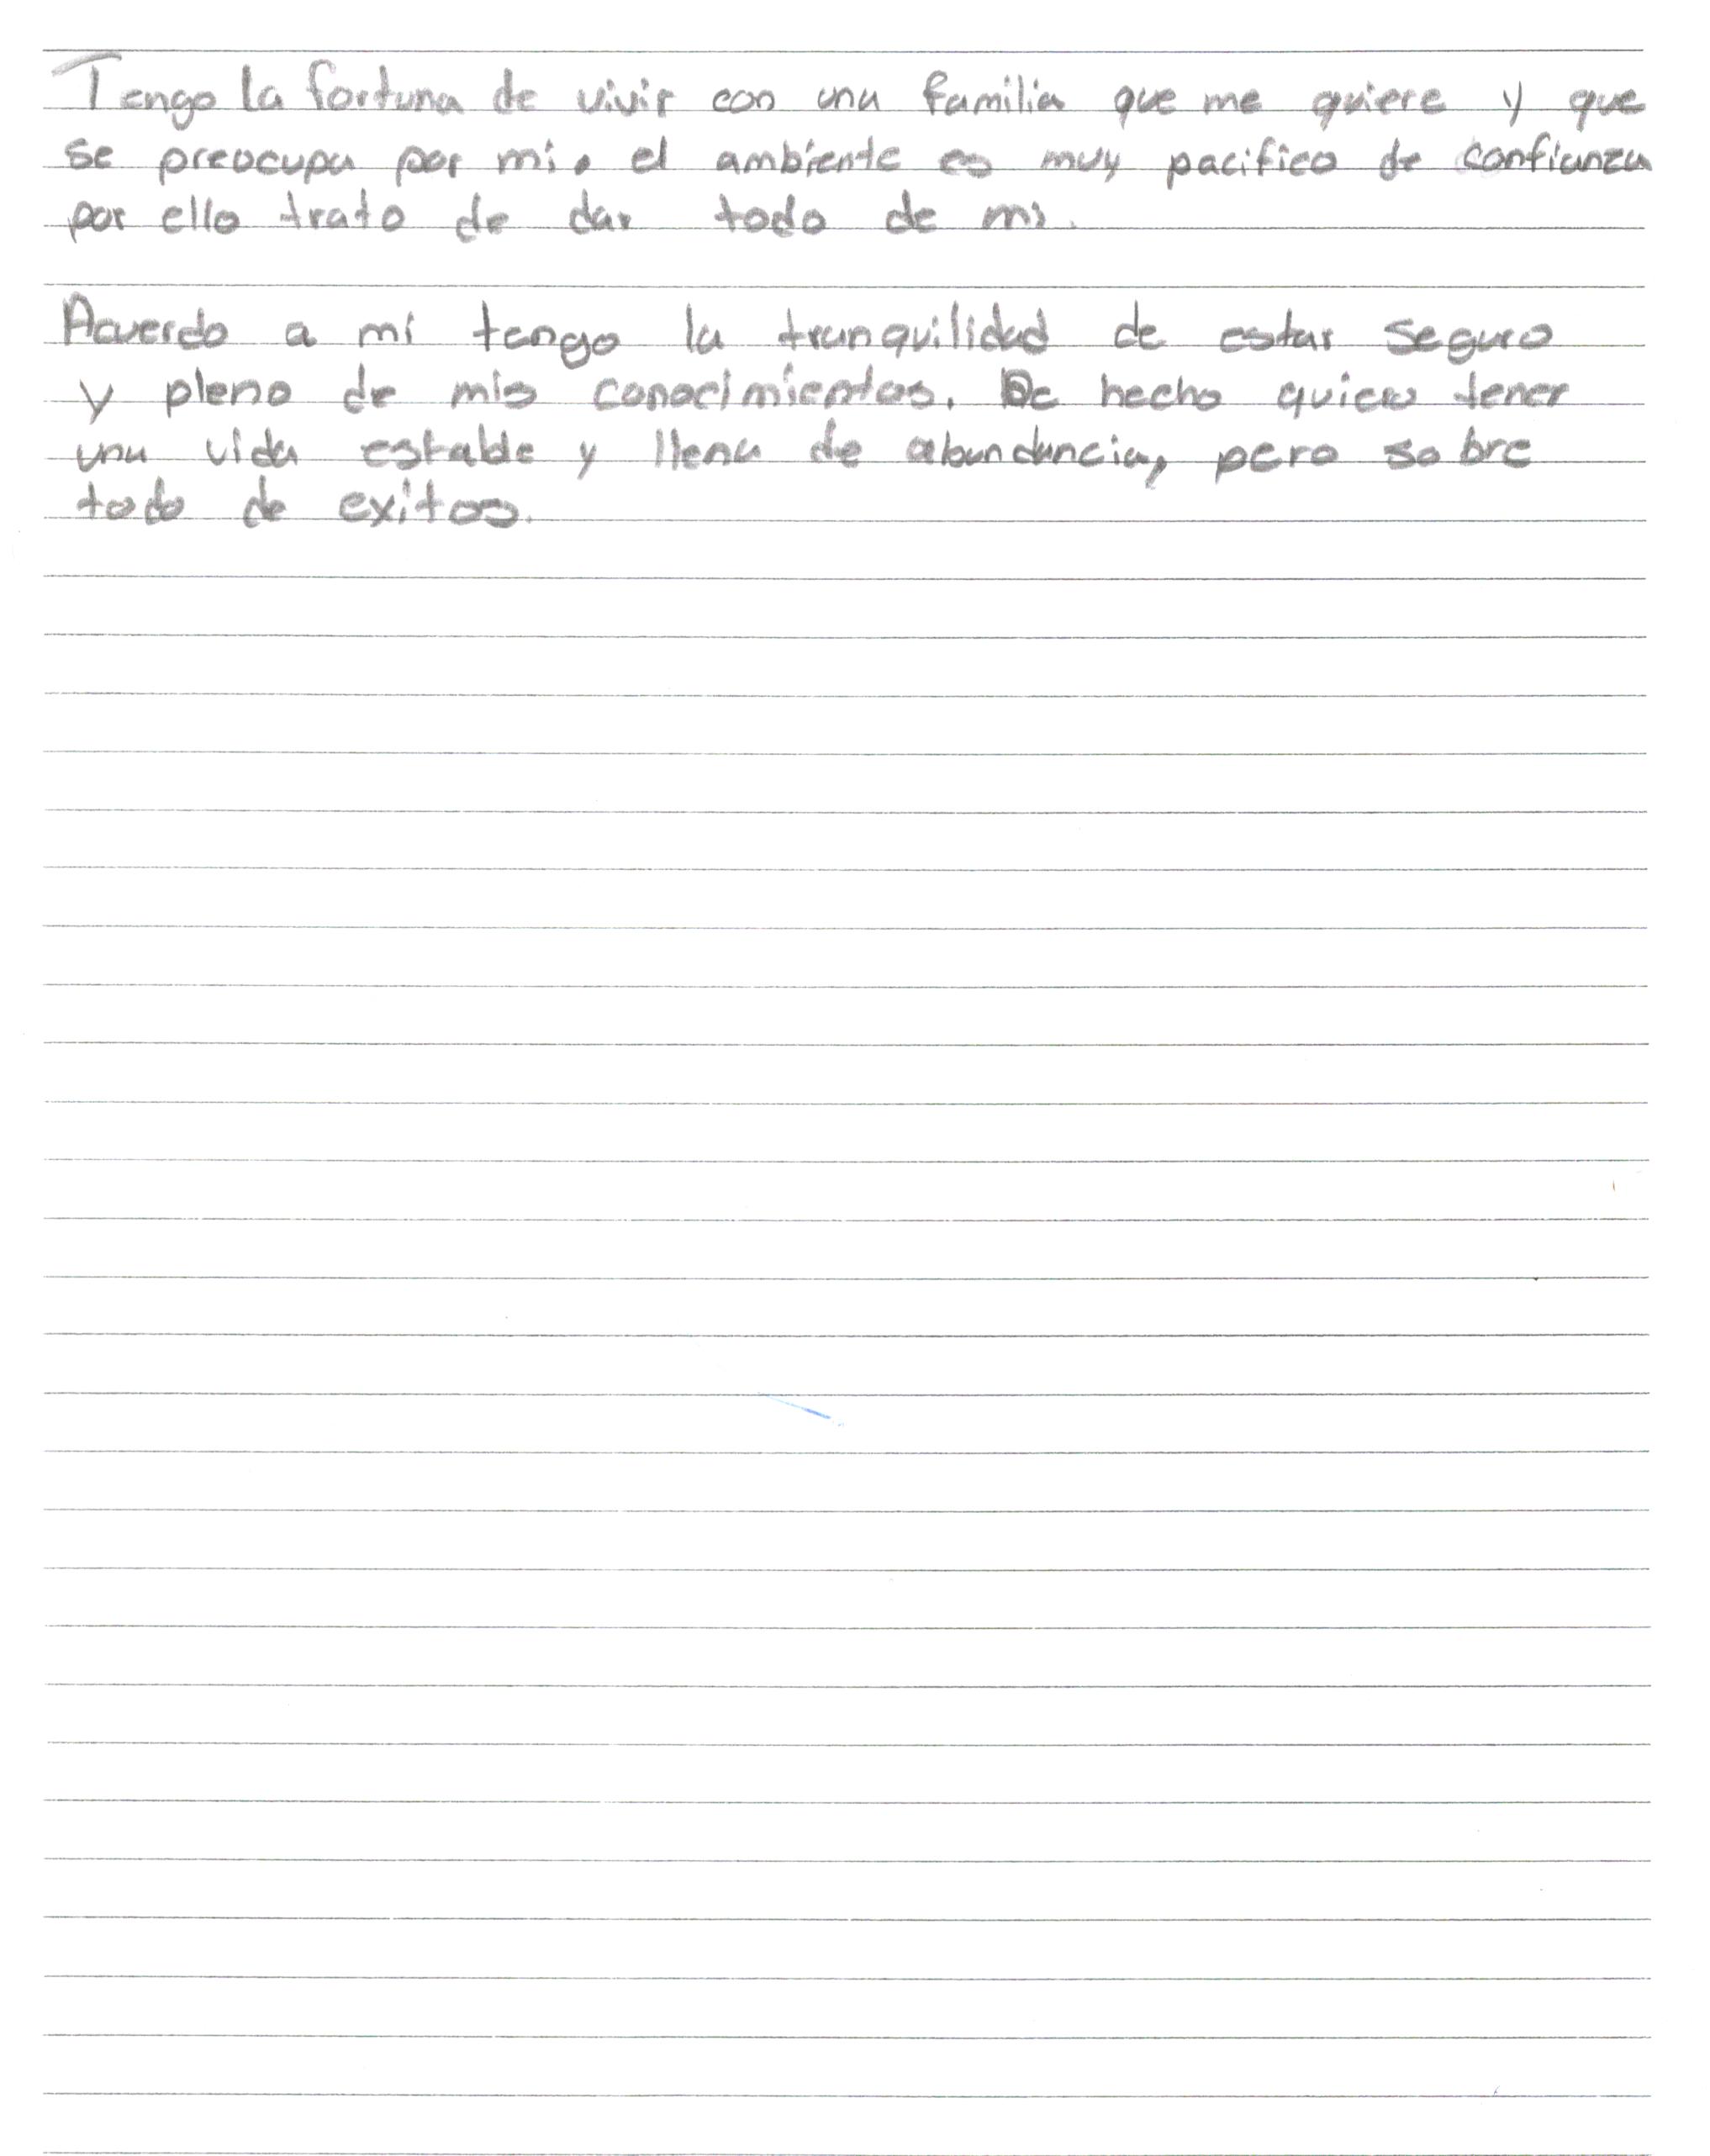 Tengo la fortuna de vivir con una familia que me quiere y que
se preocupa por mi. el ambiente es muy pacifico de confianza
por ello trato de dar todo de mi.
Acuerdo a mí tengo la tranquilidad de estar seguro
y pleno de mis conocimientos. De hecho quiero tener
una vida estable y llena de abundancia, pero sobre
todo de exitos.